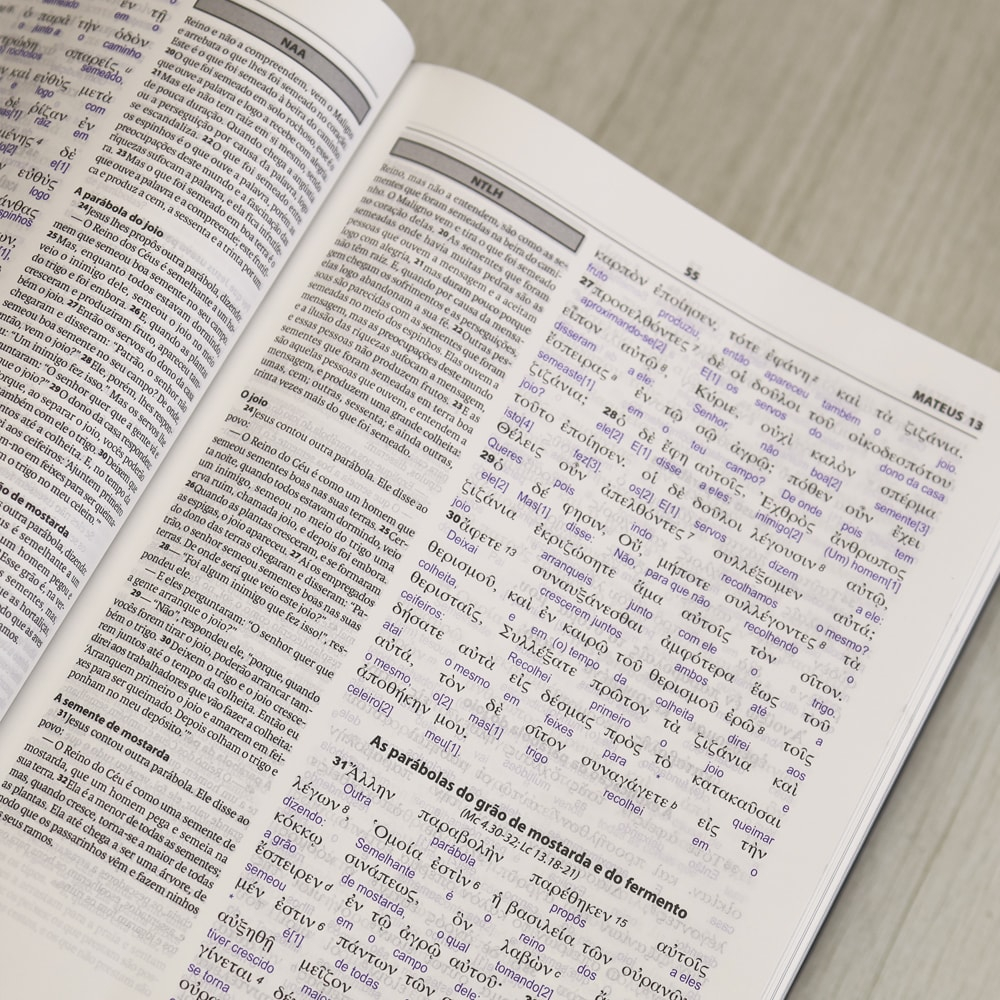 ὁ παρὰ τὴν ὁδὸν
o junto a o caminho
σπαρείς
semeado,
καὶ εὐθὺς μετὰ
e logo com
δὲ ῥίζαν ἐν
raiz em
δὲ
e[1]
εὐθὺς
logo
NAA
Reino e não a compreendem, vem o Maligno
e arrebata o que lhes foi semeado no coração.
Este é o que foi semeado à beira do caminho.
20 O que foi semeado em solo rochoso, esse é o
que ouve a palavra e logo a recebe com alegria.
21 Mas ele não tem raiz em si mesmo, sendo
de pouca duração. Quando chega a angústia
ou a perseguição por causa da palavra, logo
se escandaliza. 22 O que foi semeado entre
os espinhos é o que ouve a palavra, porém as
preocupações deste mundo e a fascinação das
riquezas sufocam a palavra, e ela fica infrutífe-
ra. 23 Mas o que foi semeado em boa terra é o
que ouve a palavra e a compreende; este frutifi-
ca e produz a cem, a sessenta e a trinta por um.
A parábola do joio
24 Jesus lhes propôs outra parábola, dizendo:
— O Reino dos Céus é semelhante a um ho-
mem que semeou boa semente no seu campo.
25 Mas, enquanto todos estavam dormindo,
veio o inimigo dele, semeou o joio no meio
do trigo e foi embora. 26 E, quando as plantas
cresceram e produziram fruto, apareceu tam-
bém o joio. 27 Então os servos do dono da casa
chegaram e disseram: "Patrão, o senhor não
semeou boa semente no seu campo? De onde
então, vem o joio?" 28 Ele, porém, lhes respon-
"Um inimigo fez isso." Mas os servos lhe
joio?" 29 O dono da casa respondeu:
porque, ao separar o joio, vocês poderão
também com ele o trigo. 30 Deixem
juntos até a colheita. E, no tempo da
aos ceifeiros: 'Ajuntem primeiro
em feixes para ser queima-
o trigo no meu celeiro.'"
do grão de mostarda
outra parábola, dizendo:
é semelhante a um
homem pegou e
Esse grão é, na ver-
NTLH
Reino, mas não a entendem, são como as se-
mentes que foram semeadas na beira do cami-
nho. O Maligno vem e tira o que foi semeado
no coração delas. 20 As sementes que foram
semeadas onde havia muitas pedras são as
pessoas que ouvem a mensagem e a aceitam
logo com alegria, 21 mas duram pouco porque
não têm raiz. E, quando por causa da mensa-
gem chegam os sofrimentos e as perseguições,
elas logo abandonam a sua fé. 22 Outras pes-
soas são parecidas com as sementes que foram
semeadas no meio dos espinhos. Elas ouvem a
mensagem, mas as preocupações deste mundo
e a ilusão das riquezas sufocam a mensagem,
e essas pessoas não produzem frutos. 23 E as
sementes que foram semeadas em terra boa
são aquelas pessoas que ouvem, e entendem a
mensagem, e produzem uma grande colheita:
umas, cem; outras, sessenta; e ainda outras,
trinta vezes mais do que foi semeado.
O joio
24 Jesus contou outra parábola. Ele disse ao
povo:
— O Reino do Céu é como um homem que
semeou boas sementes nas suas terras. 25 Cer-
ta noite, quando todos estavam dormindo, veio
um inimigo, semeou no meio do trigo uma
erva ruim, chamada joio, e depois foi embora.
26 Quando as plantas cresceram, e se formaram
as espigas, o joio apareceu. 27 Aí os empregados
do dono das terras chegaram e disseram: "Pa-
trão, o senhor semeou sementes boas nas suas
terras. De onde será que veio este joio?"
28 — "Foi algum inimigo que fez isso!", res-
pondeu ele.
— E eles perguntaram: "O senhor quer que
a gente arranque o joio?"
29 — "Não", respondeu ele, "porque, quando
vocês forem tirar o joio, poderão arrancar tam-
bém o trigo. 30 Deixem o trigo e o joio cresce-
rem juntos até o tempo da colheita. Então eu
direi aos trabalhadores que vão fazer a colheita:
'Arranquem primeiro o joio e amarrem em fei-
xes para ser queimado. Depois colham o trigo e
ponham no meu depósito.'"
A semente de mostarda
31 Jesus contou outra parábola. Ele disse ao
povo:
— O Reino do Céu é como uma semente de
mostarda, que um homem pega e semeia na
sua terra. 32 Ela é a menor de todas as sementes;
mas, quando cresce, torna-se a maior de todas
as plantas. Ela até chega a ser uma árvore, de
modo que os passarinhos vêm e fazem ninhos
nos seus ramos.
55
MATEUS 13
καρπὸν ἐποίησεν, τότε ἐφάνη 2 καὶ τὰ ζιζάνια.
fruto produziu, então apareceu também o joio.
27 προσελθόντες 7 δὲ οἱ δοῦλοι τοῦ οἰκοδεσπότου
aproximando-se[2] E[1] os servos do dono da casa
εἶπον αὐτῷ 8, Κύριε, οὐχὶ καλὸν σπέρμα
disseram a ele: Senhor, não boa[2] semente[3]
ἔσπειρας a ἐν τῷ σῷ ἀγρῷ; πόθεν οὖν ἔχει
semeaste[1] em o teu campo? De onde pois tem
ζιζάνια; 28 ὁ δὲ ἔφη αὐτοῖς, Ἐχθρὸς ἄνθρωπος
joio? ele[2] E[1] disse a eles: inimigo[2] (Um) homem[1]
τοῦτο ἐποίησεν. οἱ δὲ δοῦλοι λέγουσιν 8 αὐτῷ,
isto[4] fez[3]. os[2] E[1] servos dizem a ele:
Θέλεις οὖν ἀπελθόντες 7 συλλέξωμεν αὐτά;
Queres pois indo recolhamos o mesmo?
29 ὁ δέ φησιν, Οὔ, μήποτε συλλέγοντες 8 τὰ
ele[2] Mas[1] disse: Não, para que não recolhendo o
ζιζάνια ἐκριζώσητε ἅμα αὐτοῖς τὸν σῖτον.
joio arranqueis junto com ele o trigo.
30 ἄφετε 13 συναυξάνεσθαι ἀμφότερα ἕως τοῦ
Deixai crescerem juntos ambos até a
θερισμοῦ, καὶ ἐν καιρῷ τοῦ θερισμοῦ ἐρῶ 8 τοῖς
colheita, e em (o) tempo da colheita direi aos
θερισταῖς, Συλλέξατε πρῶτον τὰ ζιζάνια καὶ
ceifeiros: Recolhei primeiro o joio e
δήσατε αὐτὰ εἰς δέσμας πρὸς τὸ κατακαῦσαι
atai o mesmo em feixes para o queimar
αὐτά, τὸν δὲ σῖτον συναγάγετε b εἰς τὴν
o mesmo, o[2] mas[1] trigo recolhei em o
ἀποθήκην μου.
celeiro[2] meu[1].
As parábolas do grão de mostarda e do fermento
(Mc 4.30-32; Lc 13.18-21)
31 Ἄλλην παραβολὴν παρέθηκεν 15 αὐτοῖς
Outra parábola propôs a eles
λέγων 8, Ὁμοία ἐστὶν 6 ἡ βασιλεία τῶν οὐρανῶν
dizendo: Semelhante é o reino dos
κόκκῳ σινάπεως, ὃν λαβὼν c
a grão de mostarda, o qual tomando[2]
ἔσπειρεν d ἐν τῷ ἀγρῷ αὐτοῦ·
semeou em o campo dele;
μέν ἐστιν 6 πάντων τῶν
é[1] de todas
αὐξηθῇ μεῖζον
tiver crescido maior
γίνεται 4
se torna